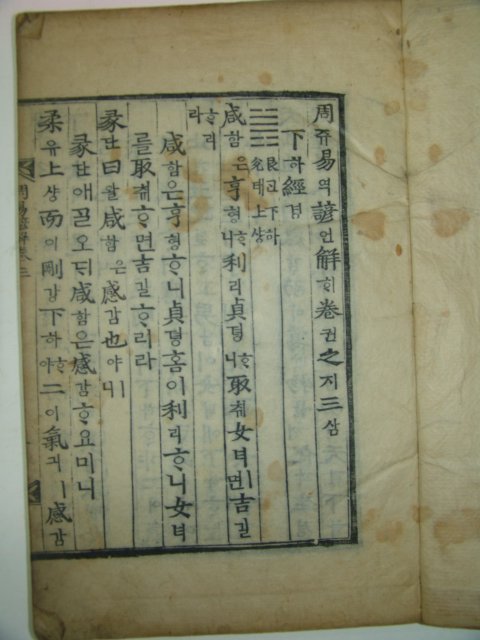 周쥬易역諺언解ᄒᆡ卷권之지三삼
下하經경
艮간下하
兌태上샹
咸함은亨형ᄒᆞ니利리貞뎡ᄒᆞ니取ᄎᆔ女녀ㅣ면吉길
ᄒᆞ리라
咸함은亨형ᄒᆞ니貞뎡홈이利리ᄒᆞ니女녀
를取ᄎᆔᄒᆞ면吉길ᄒᆞ리라
彖단曰왈咸함은感감也야ㅣ니
彖단애ᄀᆞᆯ오ᄃᆡ咸함은感감홈이니
柔유上샹而이剛강下하ᄒᆞ야二이氣긔ㅣ感감
周易諺解卷三